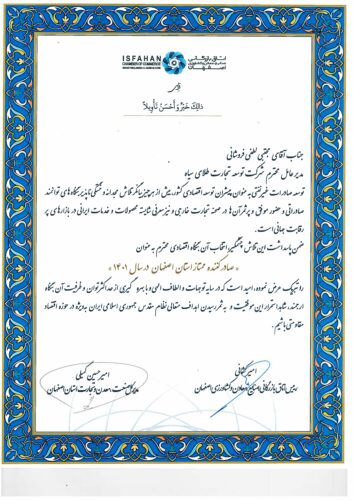 ISFAHAN
CHAMBER OF COMMERCE
اتاق بازرگانی
اصفهان
ذلِكَ خَيْرٌ وَ أَحْسَنُ تَأْوِيلاً
جناب آقای مجتبی لطفی فروشانی
مدیرعامل محترم شرکت توسعه تجارت طلای سیاه
توسعه صادرات غیرنفتی به عنوان پیشران توسعه اقتصادی کشور، بیش از هر چیز بیانگر تلاش مجدانه و خستگی ناپذیر بنگاه‌های توانمند
صادراتی و حضور موفق و پرثمر آن‌ها در صحنه تجارت خارجی و نیز معرفی شایسته محصولات و خدمات ایرانی در بازارهای پر
رقابت جهانی است.
ضمن پاسداشت این تلاش چشمگیر انتخاب آن بنگاه اقتصادی محترم به عنوان
« صادرکننده ممتاز استان اصفهان در سال ۱۴۰۱ »
را تبریک عرض نموده، امید است که در سایه توجهات و الطاف الهی و با بهره گیری از حداکثر توان و ظرفیت آن بنگاه
ارجمند، شاهد استمرار این موفقیت و به ثمر رسیدن اهداف متعالی نظام مقدس جمهوری اسلامی ایران به‌ویژه در حوزه اقتصاد
مقاومتی باشیم.
امیر کشانی
رییس اتاق بازرگانی، صنایع، معادن و کشاورزی اصفهان
امیرحسین کمیلی
مدیرکل صنعت، معدن و تجارت استان اصفهان